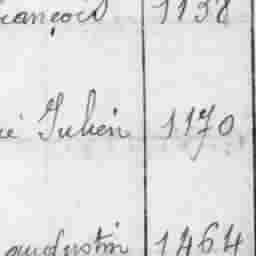 François 1138
é Julien 1170
Augustin 1464